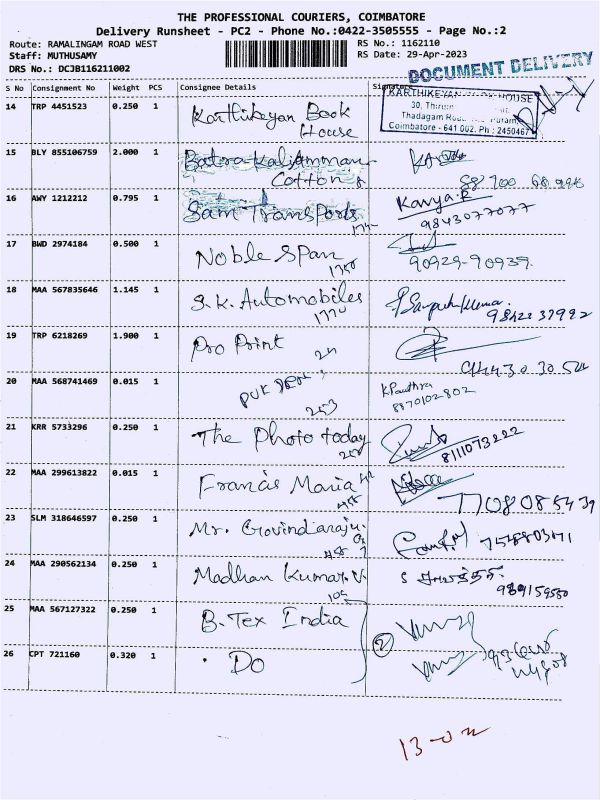 THE PROFESSIONAL COURIERS, COIMBATORE
Delivery Runsheet - PC2 - Phone No.:0422-3505555 - Page No.:2
Route: RAMALINGAM ROAD WEST RS No.: 1162110
Staff: MUTHUSAMY RS Date: 29-Apr-2023
DRS No.: DCJB116211002 DOCUMENT DELIVERY
S No Consignment No Weight PCS Consignee Details
14 TRP 4451523 0.250 1 Karthikeyan Book
House
KARTHIKEYAN HOUSE
30,
Thadagam
Coimbatore - 641 002. Ph : 2450467
15 BLY 855106759 2.000 1 Batra Kaliamman
Cotton
16 AWY 1212212 0.795 1 Sam Transports Kavya.R
9843077077
17 BWD 2974184 0.500 1 Noble Span
1750 90929-90939.
18 MAA 567835646 1.145 1 S.K. Automobiles
1770 98422 37992
19 TRP 6218269 1.900 1 Pro Print
24 94430 30 504
20 MAA 568741469 0.015 1
253 8870102802
21 KRR 5733296 0.250 1 The Photo today
8111073222
22 MAA 299613822 0.015 1 Francis Maria
7708085439
23 SLM 318646597 0.250 1 Mr. Govindaraju.
24 MAA 290562134 0.250 1 Madhan Kumar.V.
105
25 MAA 567127322 0.250 1 B.Tex India
2
26 CPT 721160 0.320 1 Do
13-02